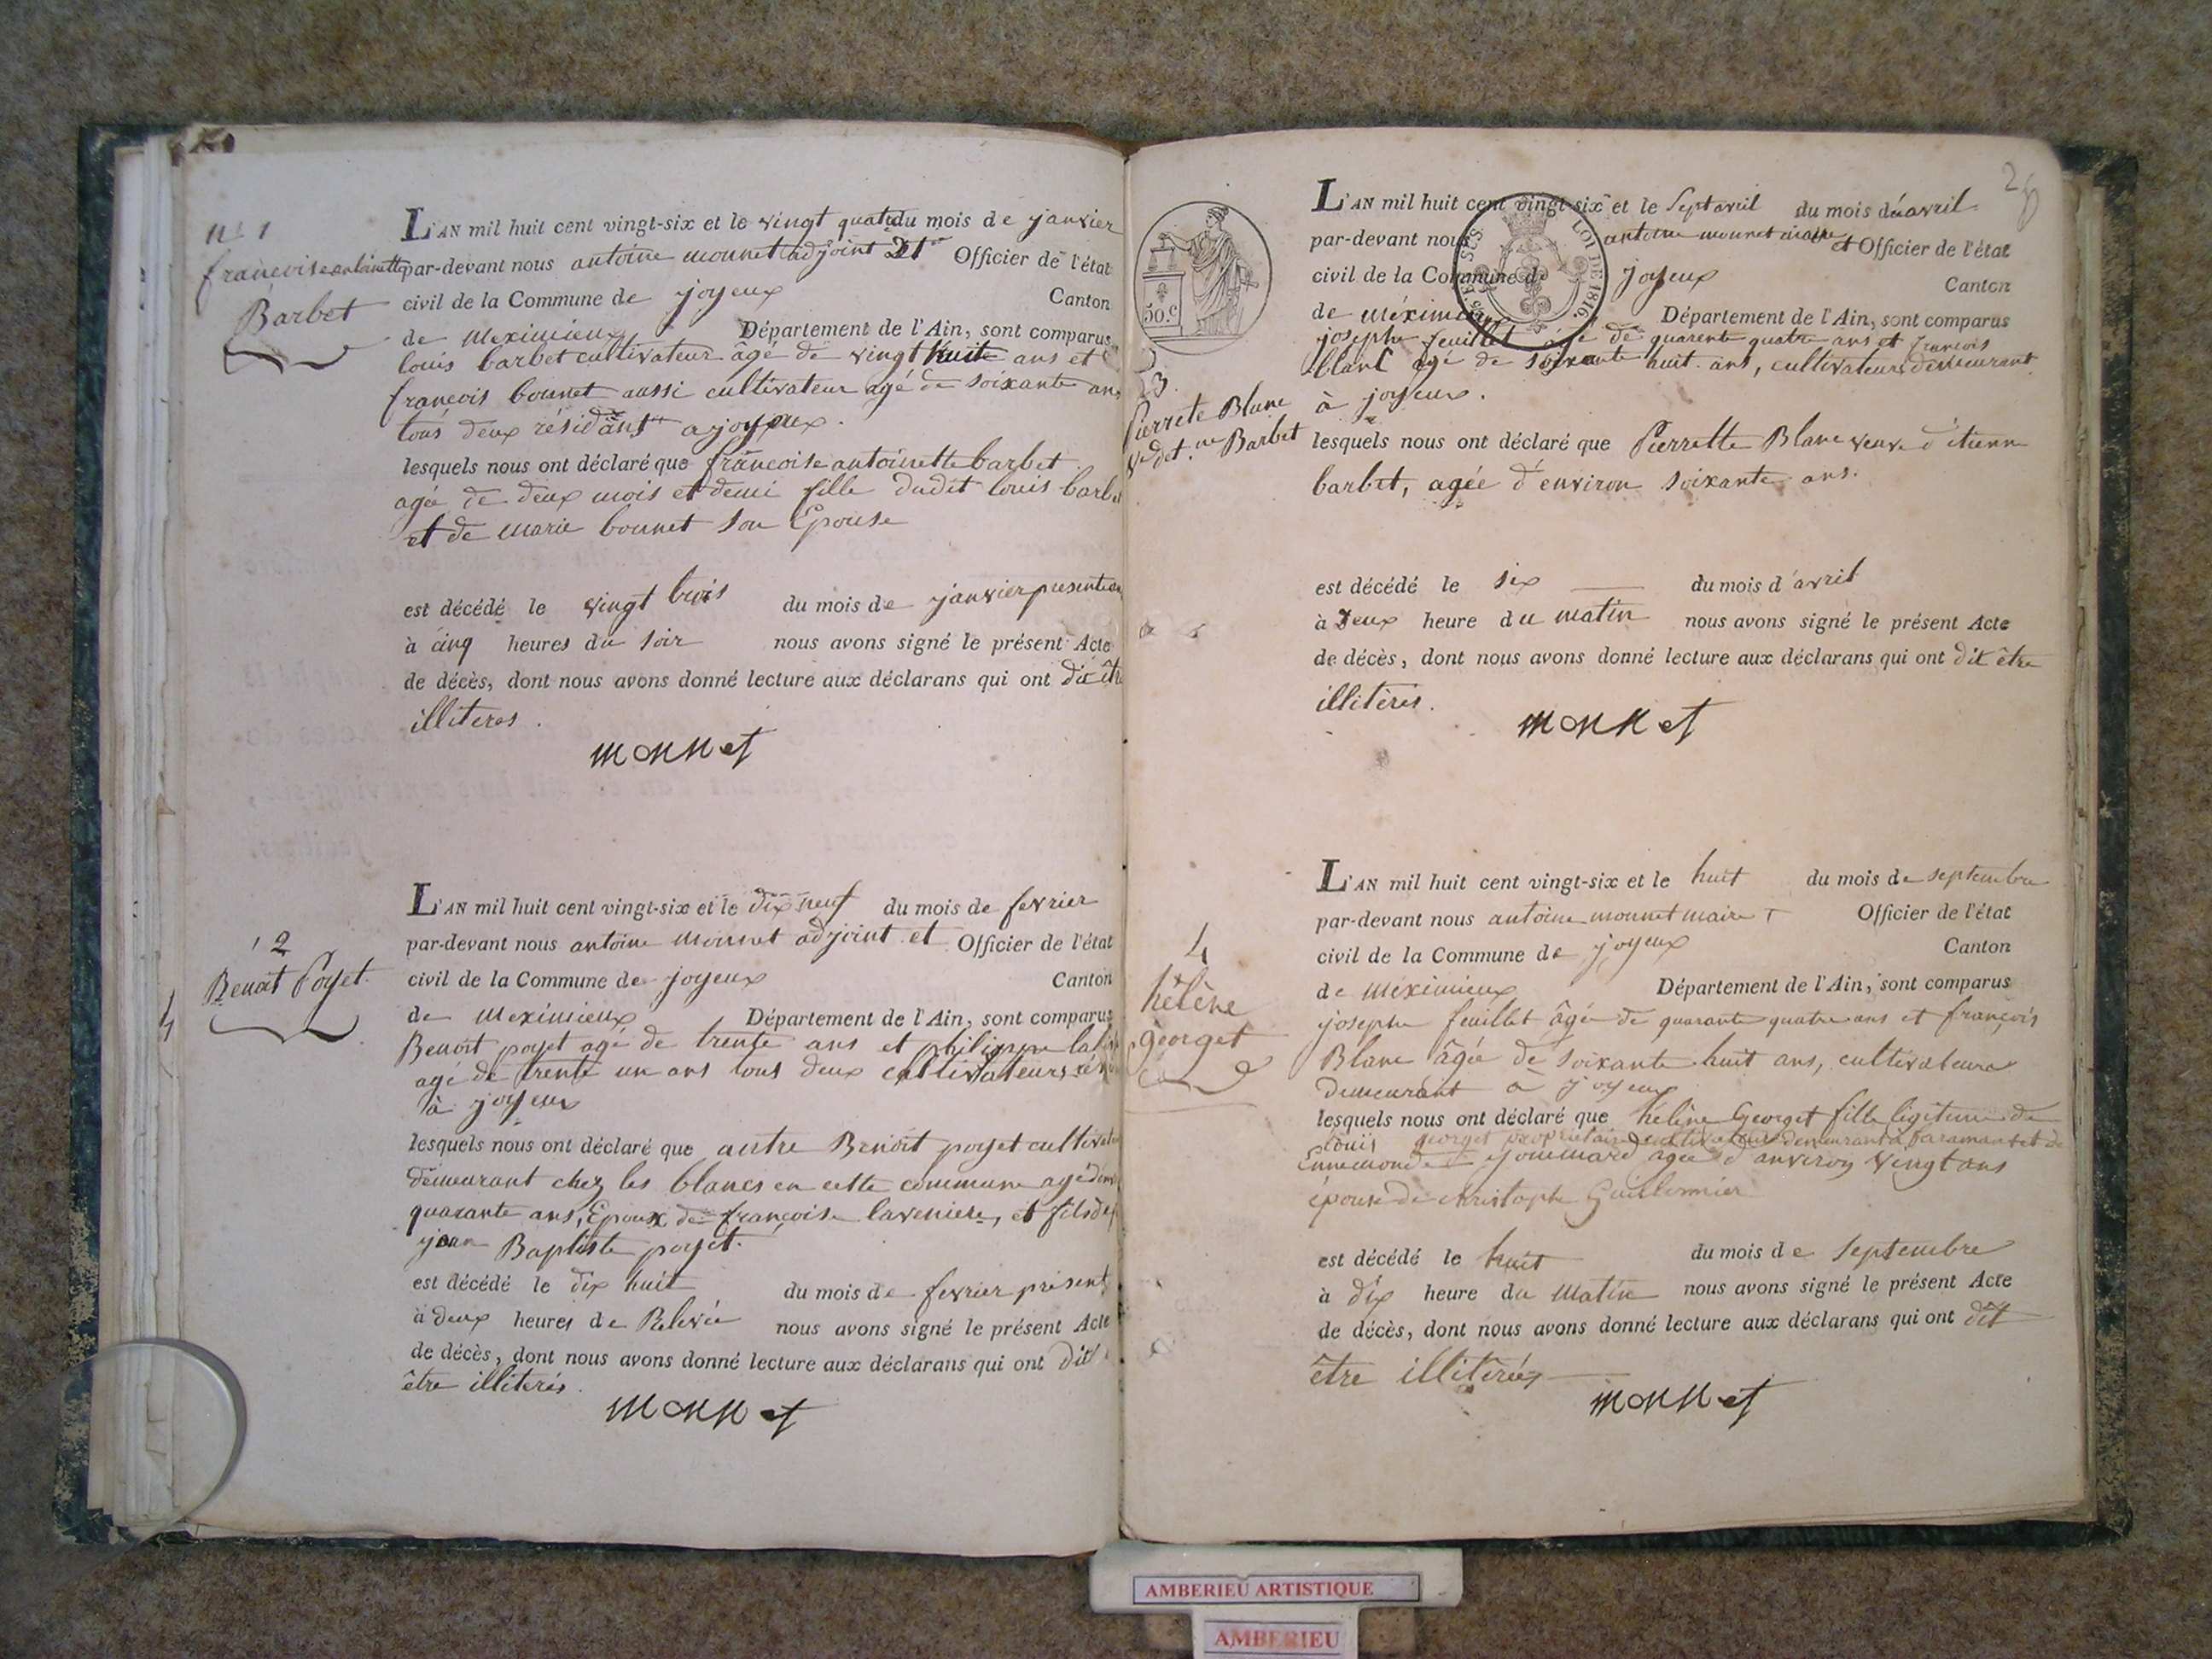 n° 1
francoise antoinette
Barbet
L'AN mil huit cent vingt-six et le vingt quatre du mois de janvier
par-devant nous antoine monnet adjoint et Officier de l'état
civil de la Commune de joyeux Canton
de Meximieux Département de l'Ain, sont comparus
louis barbet cultivateur âgé de vingt huite ans et
francois bonnet aussi cultivateur agé de soixante ans
tous deux résidants a joyeux.
lesquels nous ont déclaré que francoise antoinette barbet
agée de deux mois et demi fille dudit louis barbet
et de marie bonnet son Epouse
est décédé le vingt trois du mois de janvier present
à cinq heures du soir nous avons signé le présent Acte
de décès, dont nous avons donné lecture aux déclarans qui ont dit être
illiteres.
monnet
2
Benoit Poyet
L'AN mil huit cent vingt-six et le dix neuf du mois de fevrier
par-devant nous antoine monnet adjoint et Officier de l'état
civil de la Commune de joyeux Canton
de Meximieux Département de l'Ain, sont comparus
Benoit poyet agé de trente ans et philippe
agé de trente un ans tous deux cultivateurs
à joyeux
lesquels nous ont déclaré que autre Benoit poyet cultivateur
demeurant chez les blancs en cette commune agé
quarante ans, Epoux de françoise laveniere, et fils de
jean Baptiste poyet.
est décédé le dix huit du mois de fevrier présent
à deux heures de Relevée nous avons signé le présent Acte
de décès, dont nous avons donné lecture aux déclarans qui ont dit
être illiterés.
monnet
50.c
LOI DE 1816.
3.
Pierrete Blanc
ve det.ne Barbet
L'AN mil huit cent vingt-six et le Sept avril du mois d'avril
par-devant nous antoine monnet maire et Officier de l'état
civil de la Commune de joyeux Canton
de méximieux Département de l'Ain, sont comparus
josephe feuillet agé de quarente quatre ans et francois
blanc agé de soixante huit ans, cultivateurs demeurant
à joyeux.
lesquels nous ont déclaré que Pierrette Blanc veuve d'étienne
barbet, agée d'environ soixante ans.
est décédé le six du mois d'avril
à deux heure du matin nous avons signé le présent Acte
de décès, dont nous avons donné lecture aux déclarans qui ont dit être
illiterés.
monnet
4
hélène
georget
L'AN mil huit cent vingt-six et le huit du mois de septembre
par-devant nous antoine monnet maire Officier de l'état
civil de la Commune de joyeux Canton
de Meximieux Département de l'Ain, sont comparus
josephe feuillet âgé de quarante quatre ans et françois
Blanc âgé de soixante huit ans, cultivateurs
demeurant à joyeux
lesquels nous ont déclaré que hélène Georget fille legitime de
louis georget propriétaire cultivateur demeurant a faramant et de
Ennemonde agée d'anviron vingt ans
épouse de christophe Guillermier
est décédé le huit du mois de Septembre
à dix heure du Matin nous avons signé le présent Acte
de décès, dont nous avons donné lecture aux déclarans qui ont dit
être illitérés
monnet
AMBERIEU ARTISTIQUE
AMBERIEU